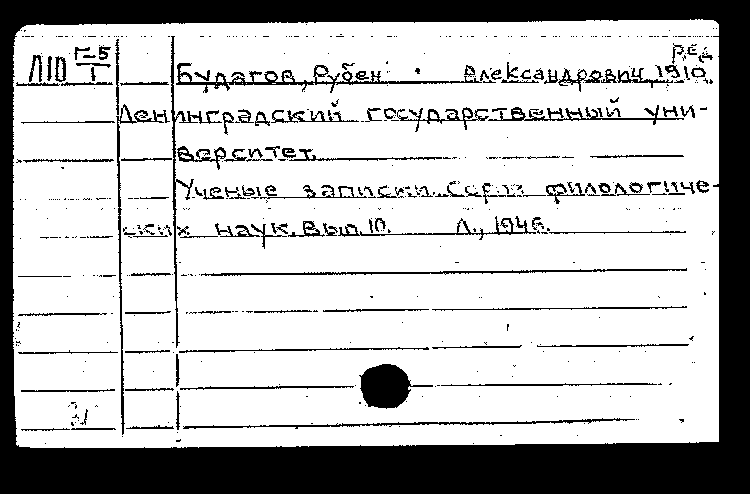 ред.
Л10 Г-5/1 Будагов, Рубен Александрович, 1910
Ленинградский государственный уни-
верситет.
Ученые записки. Серия филологиче-
ских наук. Вып. 10. Л., 1946.